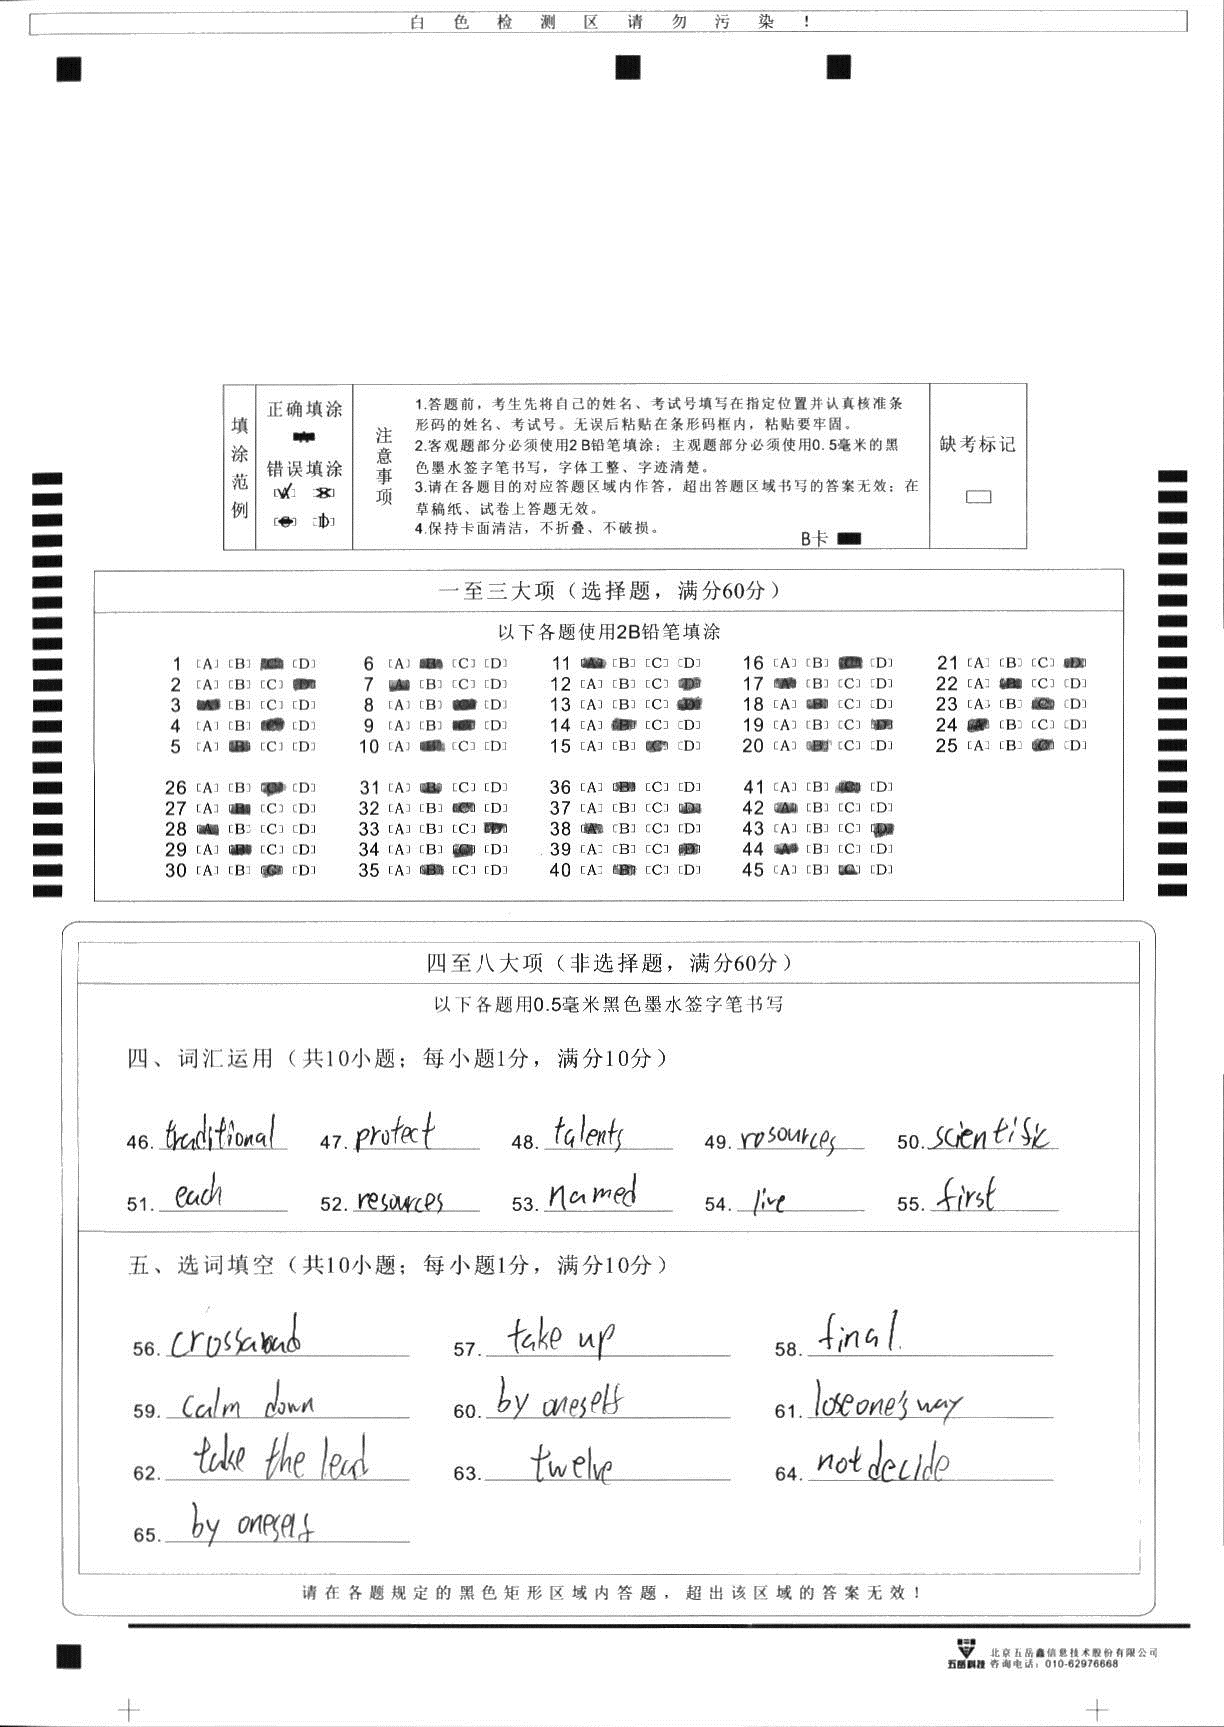 白色检测区请勿污染!
填涂范例
正确填涂
错误填涂
[A] [B]
[C] [D]
注意事项
1.答题前,考生先将自己的姓名、考试号填写在指定位置并认真核准条
形码的姓名、考试号。无误后粘贴在条形码框内,粘贴要牢固。
2.客观题部分必须使用2B铅笔填涂;主观题部分必须使用0.5毫米的黑
色墨水签字笔书写,字体工整、字迹清楚。
3.请在各题目的对应答题区域内作答,超出答题区域书写的答案无效;在
草稿纸、试卷上答题无效。
4.保持卡面清洁,不折叠、不破损。
B卡
缺考标记
一至三大项(选择题,满分60分)
以下各题使用2B铅笔填涂
1 [A] [B] [C] [D] 6 [A] [B] [C] [D] 11 [A] [B] [C] [D] 16 [A] [B] [C] [D] 21 [A] [B] [C] [D]
2 [A] [B] [C] [D] 7 [A] [B] [C] [D] 12 [A] [B] [C] [D] 17 [A] [B] [C] [D] 22 [A] [B] [C] [D]
3 [A] [B] [C] [D] 8 [A] [B] [C] [D] 13 [A] [B] [C] [D] 18 [A] [B] [C] [D] 23 [A] [B] [C] [D]
4 [A] [B] [C] [D] 9 [A] [B] [C] [D] 14 [A] [B] [C] [D] 19 [A] [B] [C] [D] 24 [A] [B] [C] [D]
5 [A] [B] [C] [D] 10 [A] [B] [C] [D] 15 [A] [B] [C] [D] 20 [A] [B] [C] [D] 25 [A] [B] [C] [D]
26 [A] [B] [C] [D] 31 [A] [B] [C] [D] 36 [A] [B] [C] [D] 41 [A] [B] [C] [D]
27 [A] [B] [C] [D] 32 [A] [B] [C] [D] 37 [A] [B] [C] [D] 42 [A] [B] [C] [D]
28 [A] [B] [C] [D] 33 [A] [B] [C] [D] 38 [A] [B] [C] [D] 43 [A] [B] [C] [D]
29 [A] [B] [C] [D] 34 [A] [B] [C] [D] 39 [A] [B] [C] [D] 44 [A] [B] [C] [D]
30 [A] [B] [C] [D] 35 [A] [B] [C] [D] 40 [A] [B] [C] [D] 45 [A] [B] [C] [D]
四至八大项(非选择题,满分60分)
以下各题用0.5毫米黑色墨水签字笔书写
四、词汇运用(共10小题;每小题1分,满分10分)
46. traditional 47. protect 48. talents 49. rosources 50. scientific
51. each 52. resources 53. named 54. live 55. first
五、选词填空(共10小题;每小题1分,满分10分)
56. 57. take up 58. final.
59. calm down 60. by oneself 61. lose one's way
62. take the lead 63. twelve 64. not decide
65. by oneself
请在各题规定的黑色矩形区域内答题,超出该区域的答案无效!
五岳科技
北京五岳鑫信息技术股份有限公司
咨询电话:010-62976668